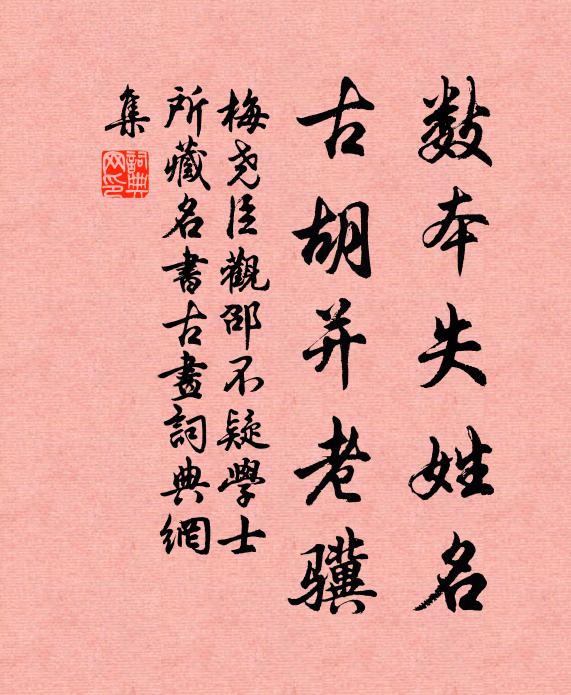 数本失姓名
古胡并老骥
梅尧臣觀邵不疑學士
所藏名書古畫詞典網
集
詞典網印